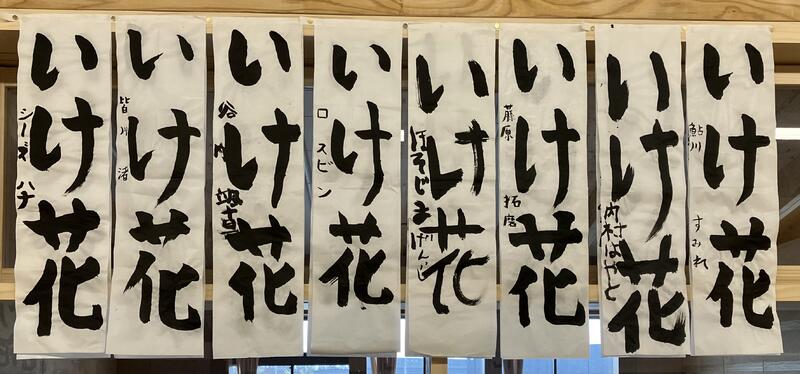 いけ花
鮎川 すみれ
いけ花
内村はやと
いけ花
藤原 拓磨
いけ花
ほそじまげんじ
いけ花
ロ スビン
いけ花
谷内 颯真
いけ花
皆川 渚
いけ花
シーズ ハナ